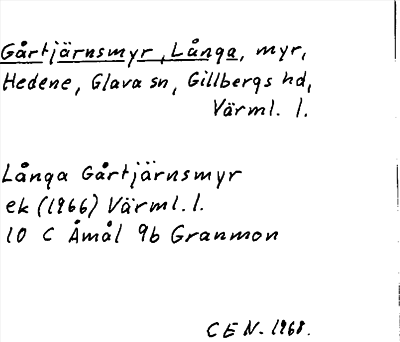 Gårtjärnsmyr, Långa, myr,
Hedene, Glava sn, Gillbergs hd,
Värml. l.
Långa Gårtjärnsmyr
ek (1966) Värml. l.
10 C Åmål 9b Granmon
CEN. 1968.